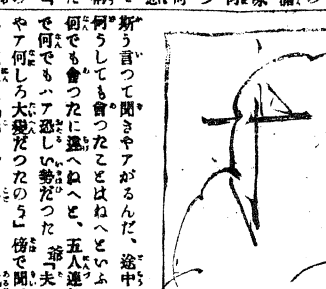 斯う言つて聞きやアがるんだ、途中
何うしても會つたことはねへといふ
何でも會つたに違へねへと、五人連
で何でもハア恐しい勢だつた 爺「夫
やア何しろ大變だつたのう」傍で聞